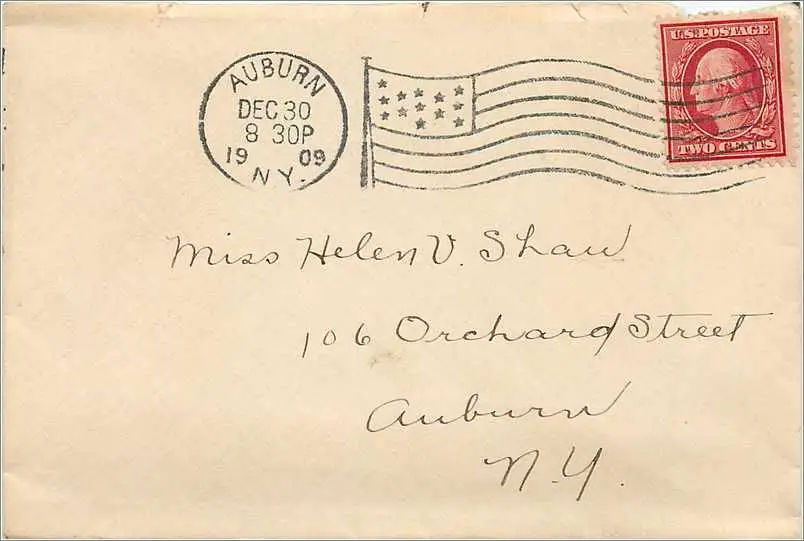 AUBURN
DEC 30
8 30P
1909
N.Y.
U.S. POSTAGE
TWO CENTS
Miss Helen V. Shaw
106 Orchard Street
Auburn
N.Y.